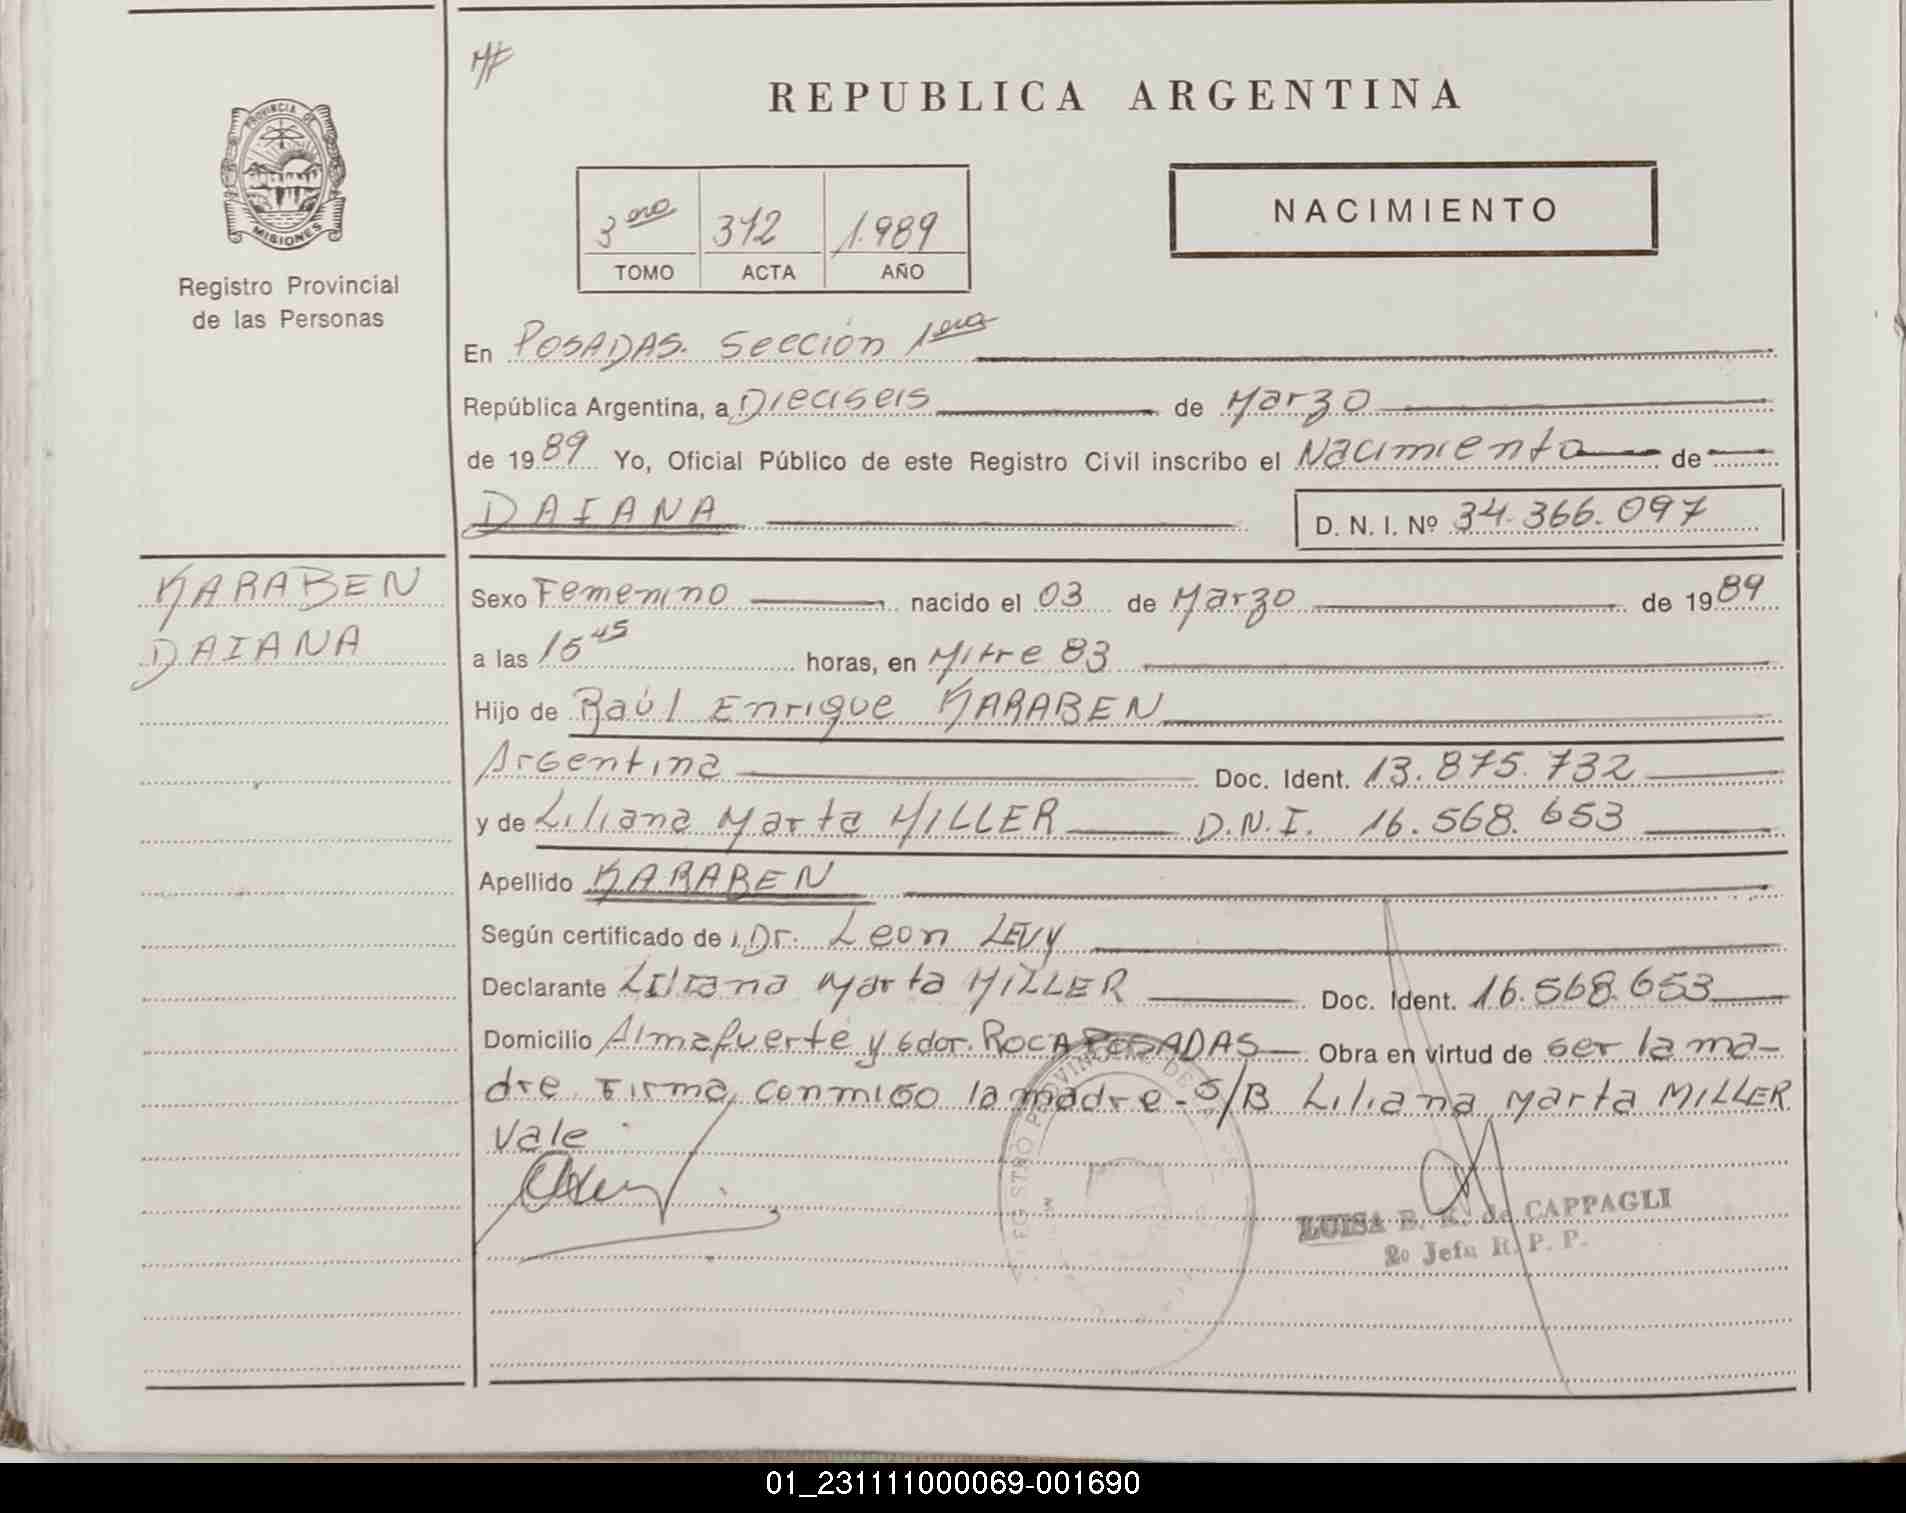 MF
REPUBLICA ARGENTINA
PROVINCIA DE
MISIONES
Registro Provincial
de las Personas
3ero 372 1.989
TOMO ACTA AÑO
NACIMIENTO
En POSADAS. Sección 1era
República Argentina, a Dieciseis de Marzo
de 1989 Yo, Oficial Público de este Registro Civil inscribo el Nacimiento de
DAIANA D. N. I. Nº 34.366.097
KARABEN
DAIANA
Sexo Femenino nacido el 03 de Marzo de 1989
a las 15 45 horas, en Mitre 83
Hijo de Raúl Enrique KARABEN
Argentina Doc. Ident. 13.875.732
y de Liliana Marta MILLER D.N.I. 16.568.653
Apellido KARABEN
Según certificado de Dr. Leon LEVY
Declarante Liliana Marta MILLER Doc. Ident. 16.568.653
Domicilio Almafuerte y Gdor. ROCA POSADAS Obra en virtud de ser la ma-
dre. Firma conmigo la madre - S/B Liliana Marta MILLER
Vale
LUISA B. K. de CAPPAGLI
2o Jefa R. P. P.
01_231111000069-001690